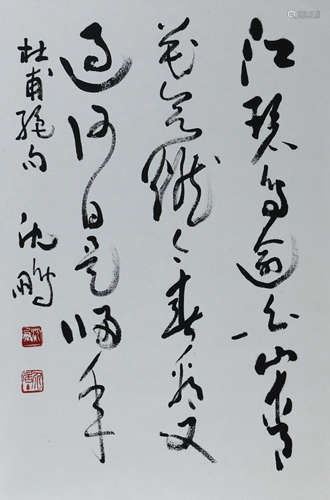 江碧鳥逾白山青
花欲燃今春看又
過何日是歸年
杜甫絕句 沈鵬